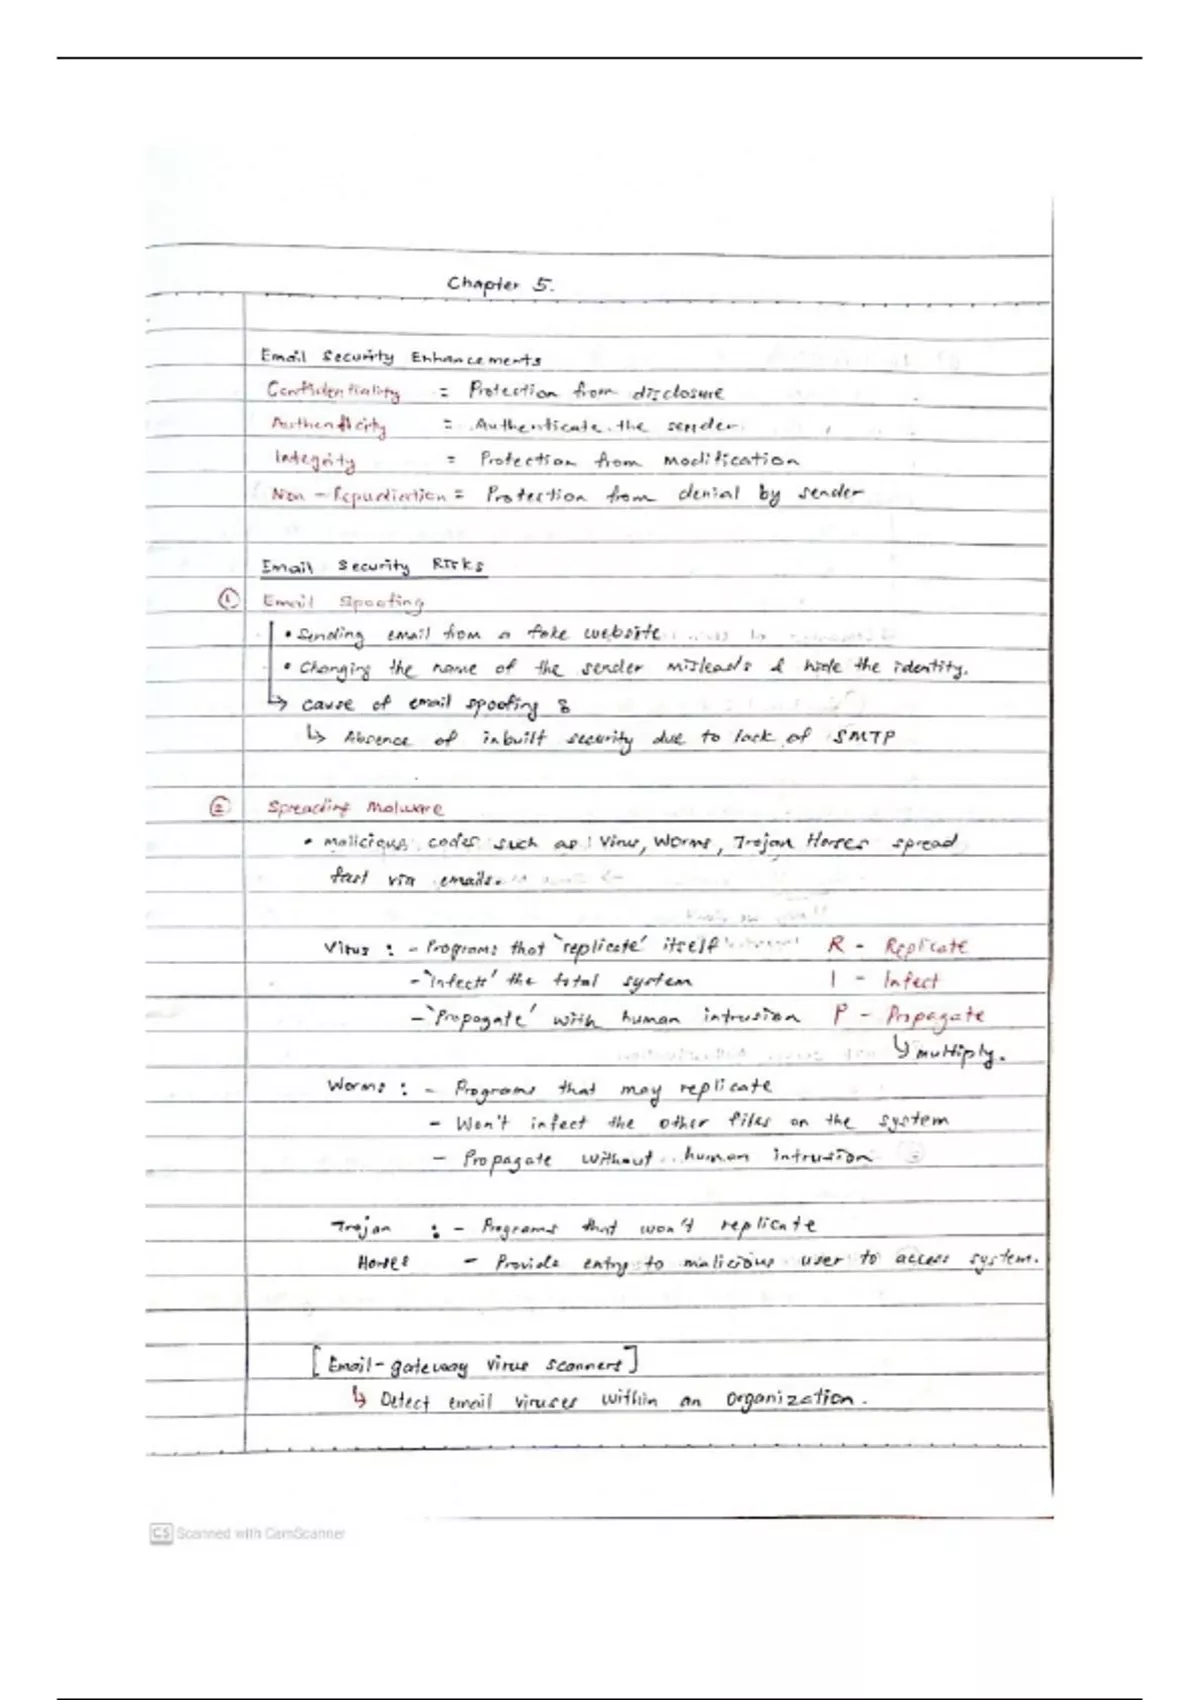 Chapter 5.
Email Security Enhancements
Confidentiality = Protection from disclosure
Authenticity = Authenticate the sender.
Integrity = Protection from modification
Non - Repudiation = Protection from denial by sender
Email Security Risks
① Email Spoofing
• Sending email from a fake website
• Changing the name of the sender misleads & hide the identity.
↳ cause of email spoofing :
↳ Absence of inbuilt security due to lack of SMTP
② Spreading Malware
• malicious codes such as : Virus, Worms, Trojan Horses spread
fast via emails.
Virus : - Programs that 'replicate' itself R - Replicate
- 'Infects' the total system I - Infect
- 'Propagate' with human intrusion P - Propagate
↳ multiply.
Worms : - Programs that may replicate
- Won't infect the other files on the system
- Propagate without human intrusion
Trojan : - Programs that won't replicate
Horses - Provide entry to malicious user to access system.
[Email-gateway virus scanners]
↳ Detect email viruses within an organization.
CS Scanned with CamScanner